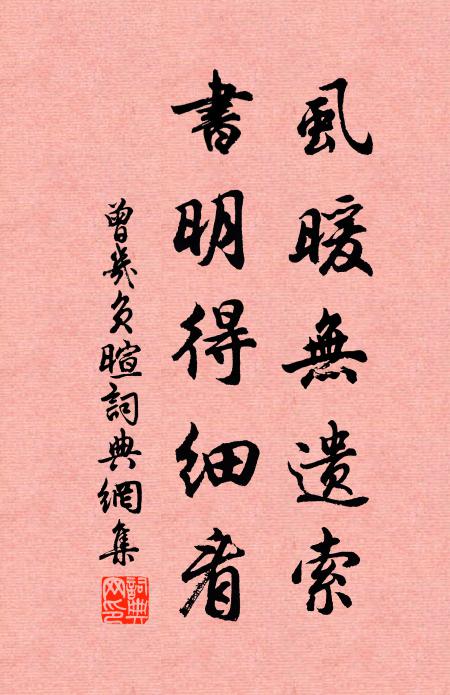 虱暖無遺索
書明得細看
曾幾負暄詞典網集
詞典网印